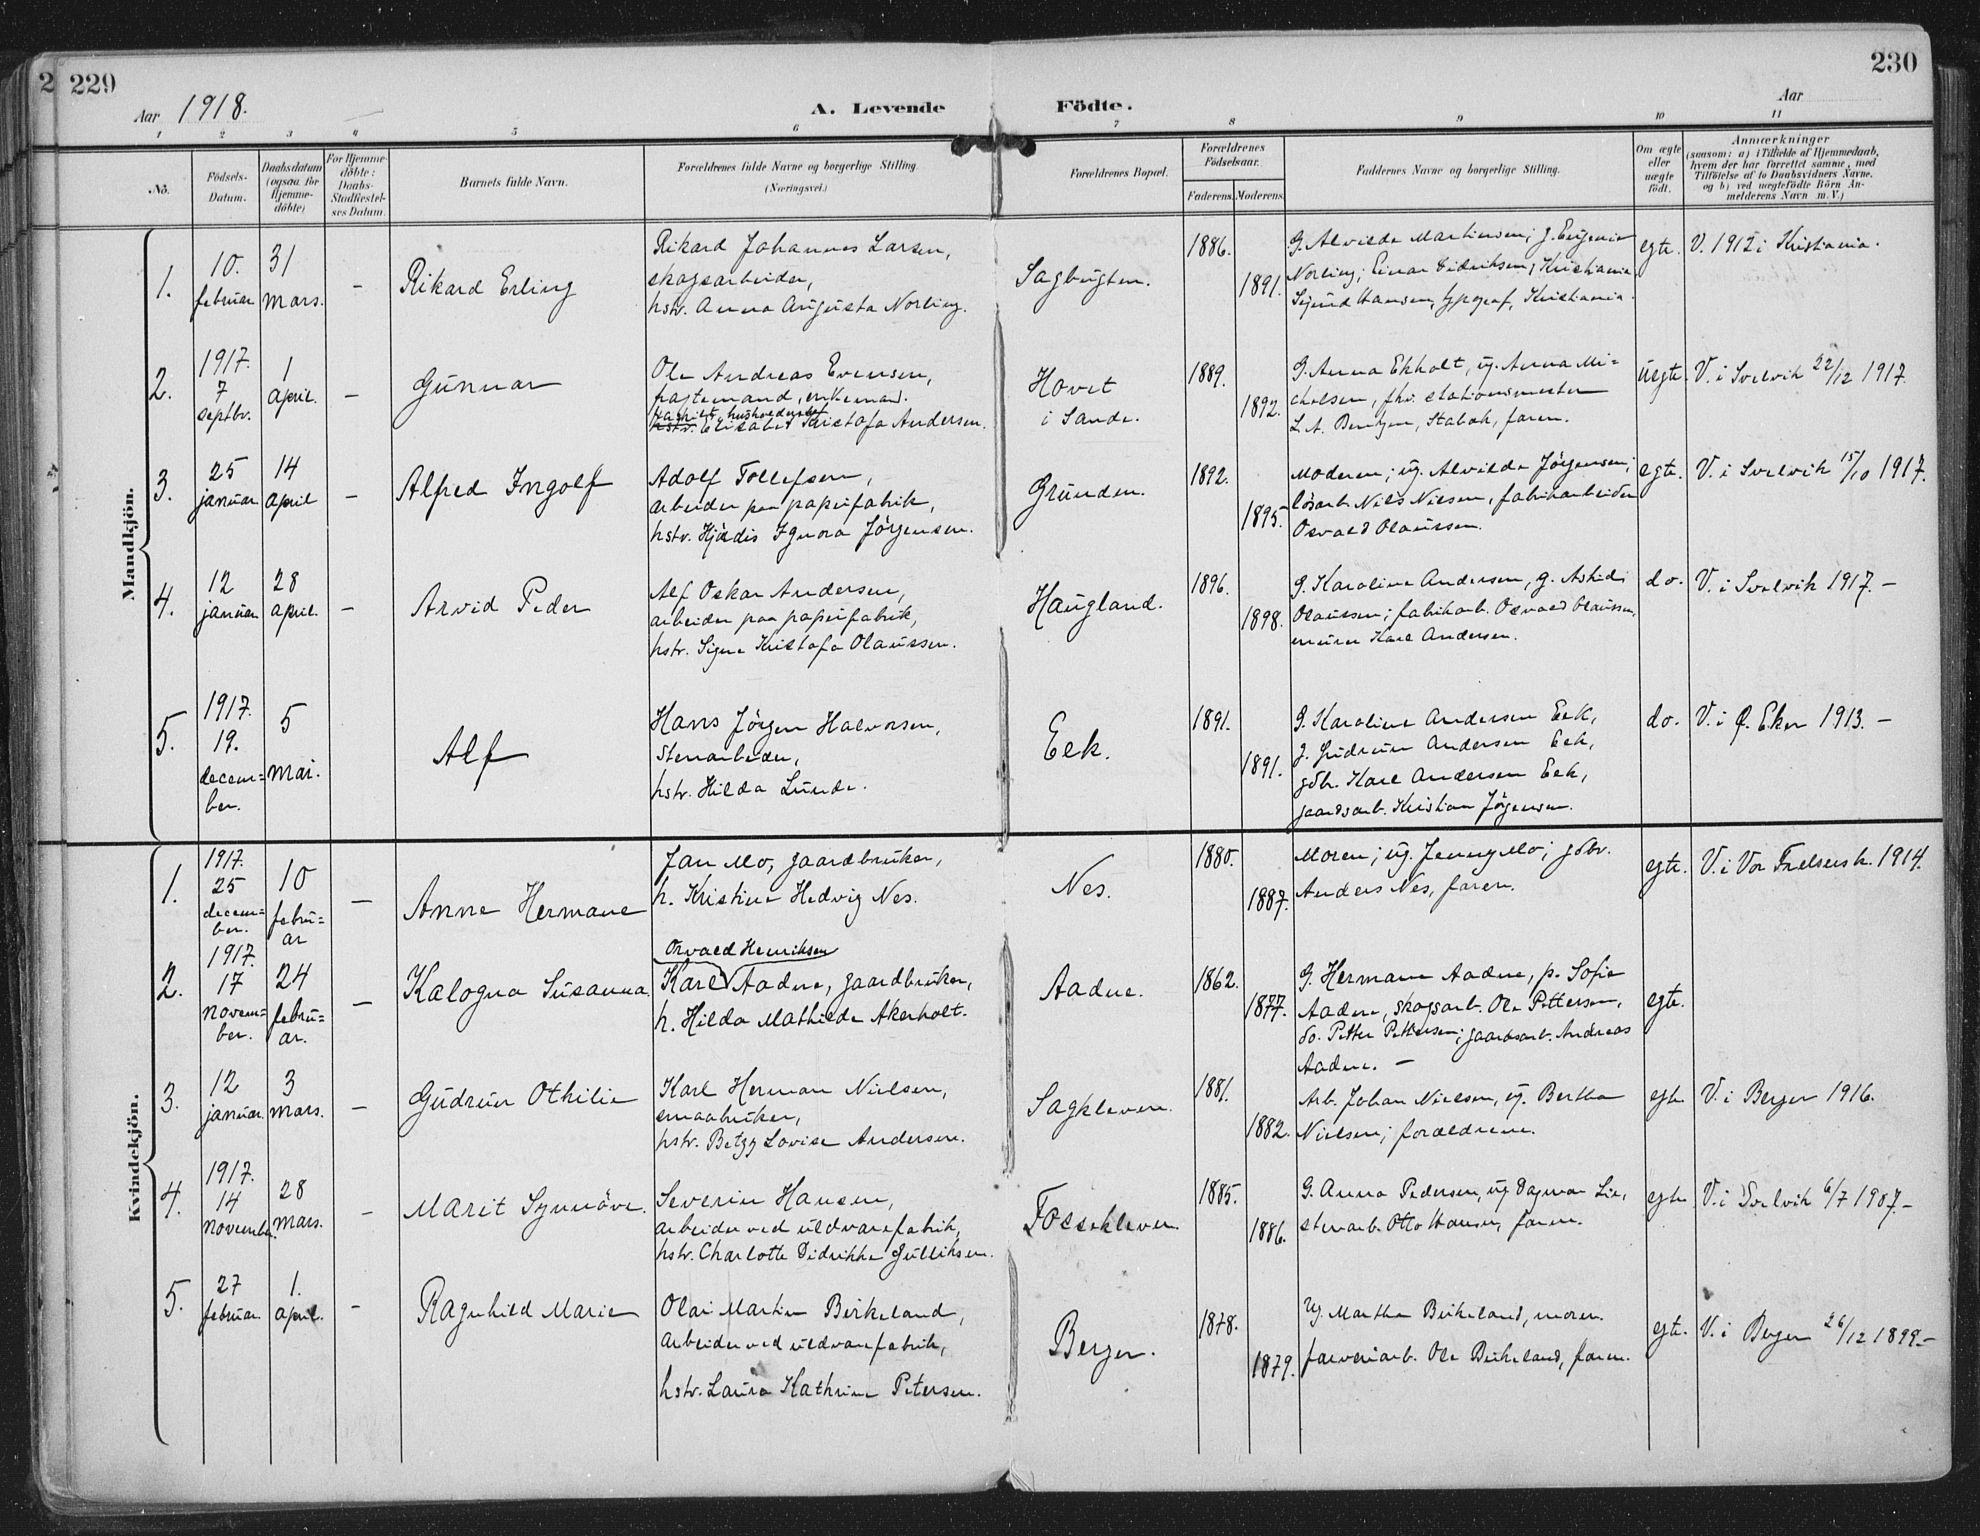 2
229
230
Aar 1918.
A. Levende
Födte.
Aar
1 2 3 4 5 6 7 8 9 10 11
No.
Födsels-
Datum.
Daabsdatum
(ogsaa for
Hjemme-
döbte)
For Hjemme-
döbte:
Daabs-
Stadfæstel-
ses Datum.
Barnets fulde Navn.
Forældrenes fulde Navne og borgerlige Stilling.
(Næringsvei.)
Forældrenes Bopæl.
Forældrenes
Födselsaar.
Faderens. Moderens.
Faddernes Navne og borgerlige Stilling.
Om ægte
eller
uægte
födt.
Anmærkninger
(saasom: a) i Tilfælde af Hjemmedaab,
hvem der har forrettet samme, med
Tilföielse af to Daabsvidners Navne,
og b) ved uægtefödte Börn An-
melderens Navn m. V.)
Mandkjön.
1.
10.
februar
31
mars.
-
Rikard Erling
Rikard Johannes Larsen,
skogsarbeider,
hstr. Anna Augusta Norling.
Sagbugten.
1886.
1891.
G. Alvilde Martinsen; g. Eugenie
Norling; Einar Didriksen, Kristiania
Sigurd Hansen, typograf, Kristiania.
egte.
V. 1912 i Kristiania.
2.
1917.
7
septbr.
1
april.
-
Gunnar
Ole Andreas Evensen,
enkemand.
husholderske
hstr. Elisabet Kristofa Andersen.
Hovet
i Sande.
1889.
1892.
G. Anna Ekholt, ug. Anna Mi=
chelsen, fhv. stationsmester
L. A. Bentzen, Stabæk, faren.
uegte.
V. i Svelvik 22/12 1917.
3.
25
januar.
14
april
-
Alfred Ingolf
Adolf Tollefsen,
arbeider paa papirfabrik,
hstr. Hjørdis Ignora Jörgensen.
Grunden.
1892.
1895.
Moderen; ug. Alvilde Jörgensen;
lösarb. Nils Nilsen, fabrikarbeider
Osvald Olaussen.
egte.
V. i Svelvik 15/10 1917.
4.
12
januar
28
april.
-
Arvid Peder
Alf Oskar Andersen,
arbeider paa papirfabrik,
hstr. Signe Kristofa Olaussen.
Haugland.
1896.
1898.
G. Karoline Andersen, g. Astrid
Olaussen; fabrikarb. Osvald Olaussen,
murer Karl Andersen.
do.
V. i Svelvik 1917. -
5.
1917.
19.
decem=
ber.
5
mai.
Alf
Hans Jörgen Halvorsen,
Stenarbeider,
hstr. Hilda Lunde.
Eek.
1891.
1891.
G. Karoline Andersen Eek,
g. Gudrun Andersen Eek,
gdbr. Karl Andersen Eek,
gaardsarb. Kristian Jörgensen.
do.
V. i Ø. Eker 1913. -
Kvindekjön.
1.
1917.
25
decem=
ber.
10
febru=
ar
-
Anne Hermane
Jan Mo, gaardbruker,
h. Kristine Hedvig Nes.
Nes.
1880.
1887.
Moren; ug. Jenny Mo; gdbr.
Anders Nes, faren.
egte.
V. i Vor Frelsers k. 1914.
2.
1917.
17
novem=
ber.
24
febru=
ar.
-
Kalogna Susanna
Osvald Henriksen
Karl Aadne, gaardbruker,
h. Hilda Mathilde Akerholt.
Aadne.
1862.
1877.
G. Hermane Aadne, p. Sofie
Aadne, skogsarb. Ole Pettersen,
do. Petter Pettersen; gaardsarb. Andreas
Aadne. -
egte.
3.
12
januar.
3
mars.
-
Gudrun Othilie
Karl Herman Nielsen,
smaabruker,
hstr. Betzy Lovise Andersen.
Sagkleven.
1881.
1882.
Arb. Johan Nielsen, ug. Bertha
Nielsen; forældrene.
egte
V. i Berger 1916.
4.
1917.
14
november.
28
mars.
-
Marit Synnöve
Severin Hansen,
arbeider ved uldvarefabrik,
hstr. Charlotte Didrikke Gulliksen.
Fossekleven
1885.
1886.
G. Anna Pedersen, ug. Dagmar Lie,
stenarb. Otto Hansen, faren.
egte
V. i Svelvik 6/7 1907.-
5.
27
februar.
1.
april.
-
Ragnhild Marie
Olai Martin Birkeland,
arbeider ved uldvarefabrik,
hstr. Laura Kathrine Petersen.
Berger.
1878.
1879.
Ug. Martha Birkeland, moren.
farveriarb. Ole Birkeland, faren.
egte.
V. i Berger 26/12 1899.-